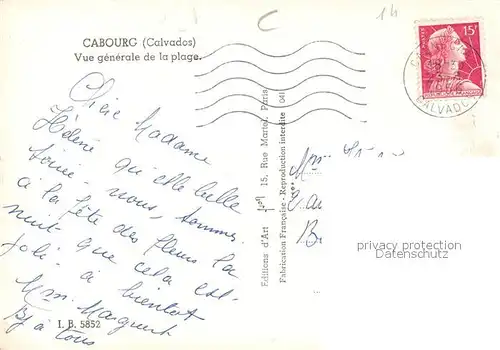 C
14
CABOURG (Calvados)
Vue générale de la plage.
15F
CALVADOS
Chère Madame
Hélène qu'elle belle
soirée nous sommes
à la fête des fleurs la
nuit que cela est
joli à bientôt
Mme Marguerit
à tous
I. B. 5852
Editions d'Art 15, Rue Martel, Paris
Fabrication Française - Reproduction interdite 041
Mme
privacy protection
Datenschutz